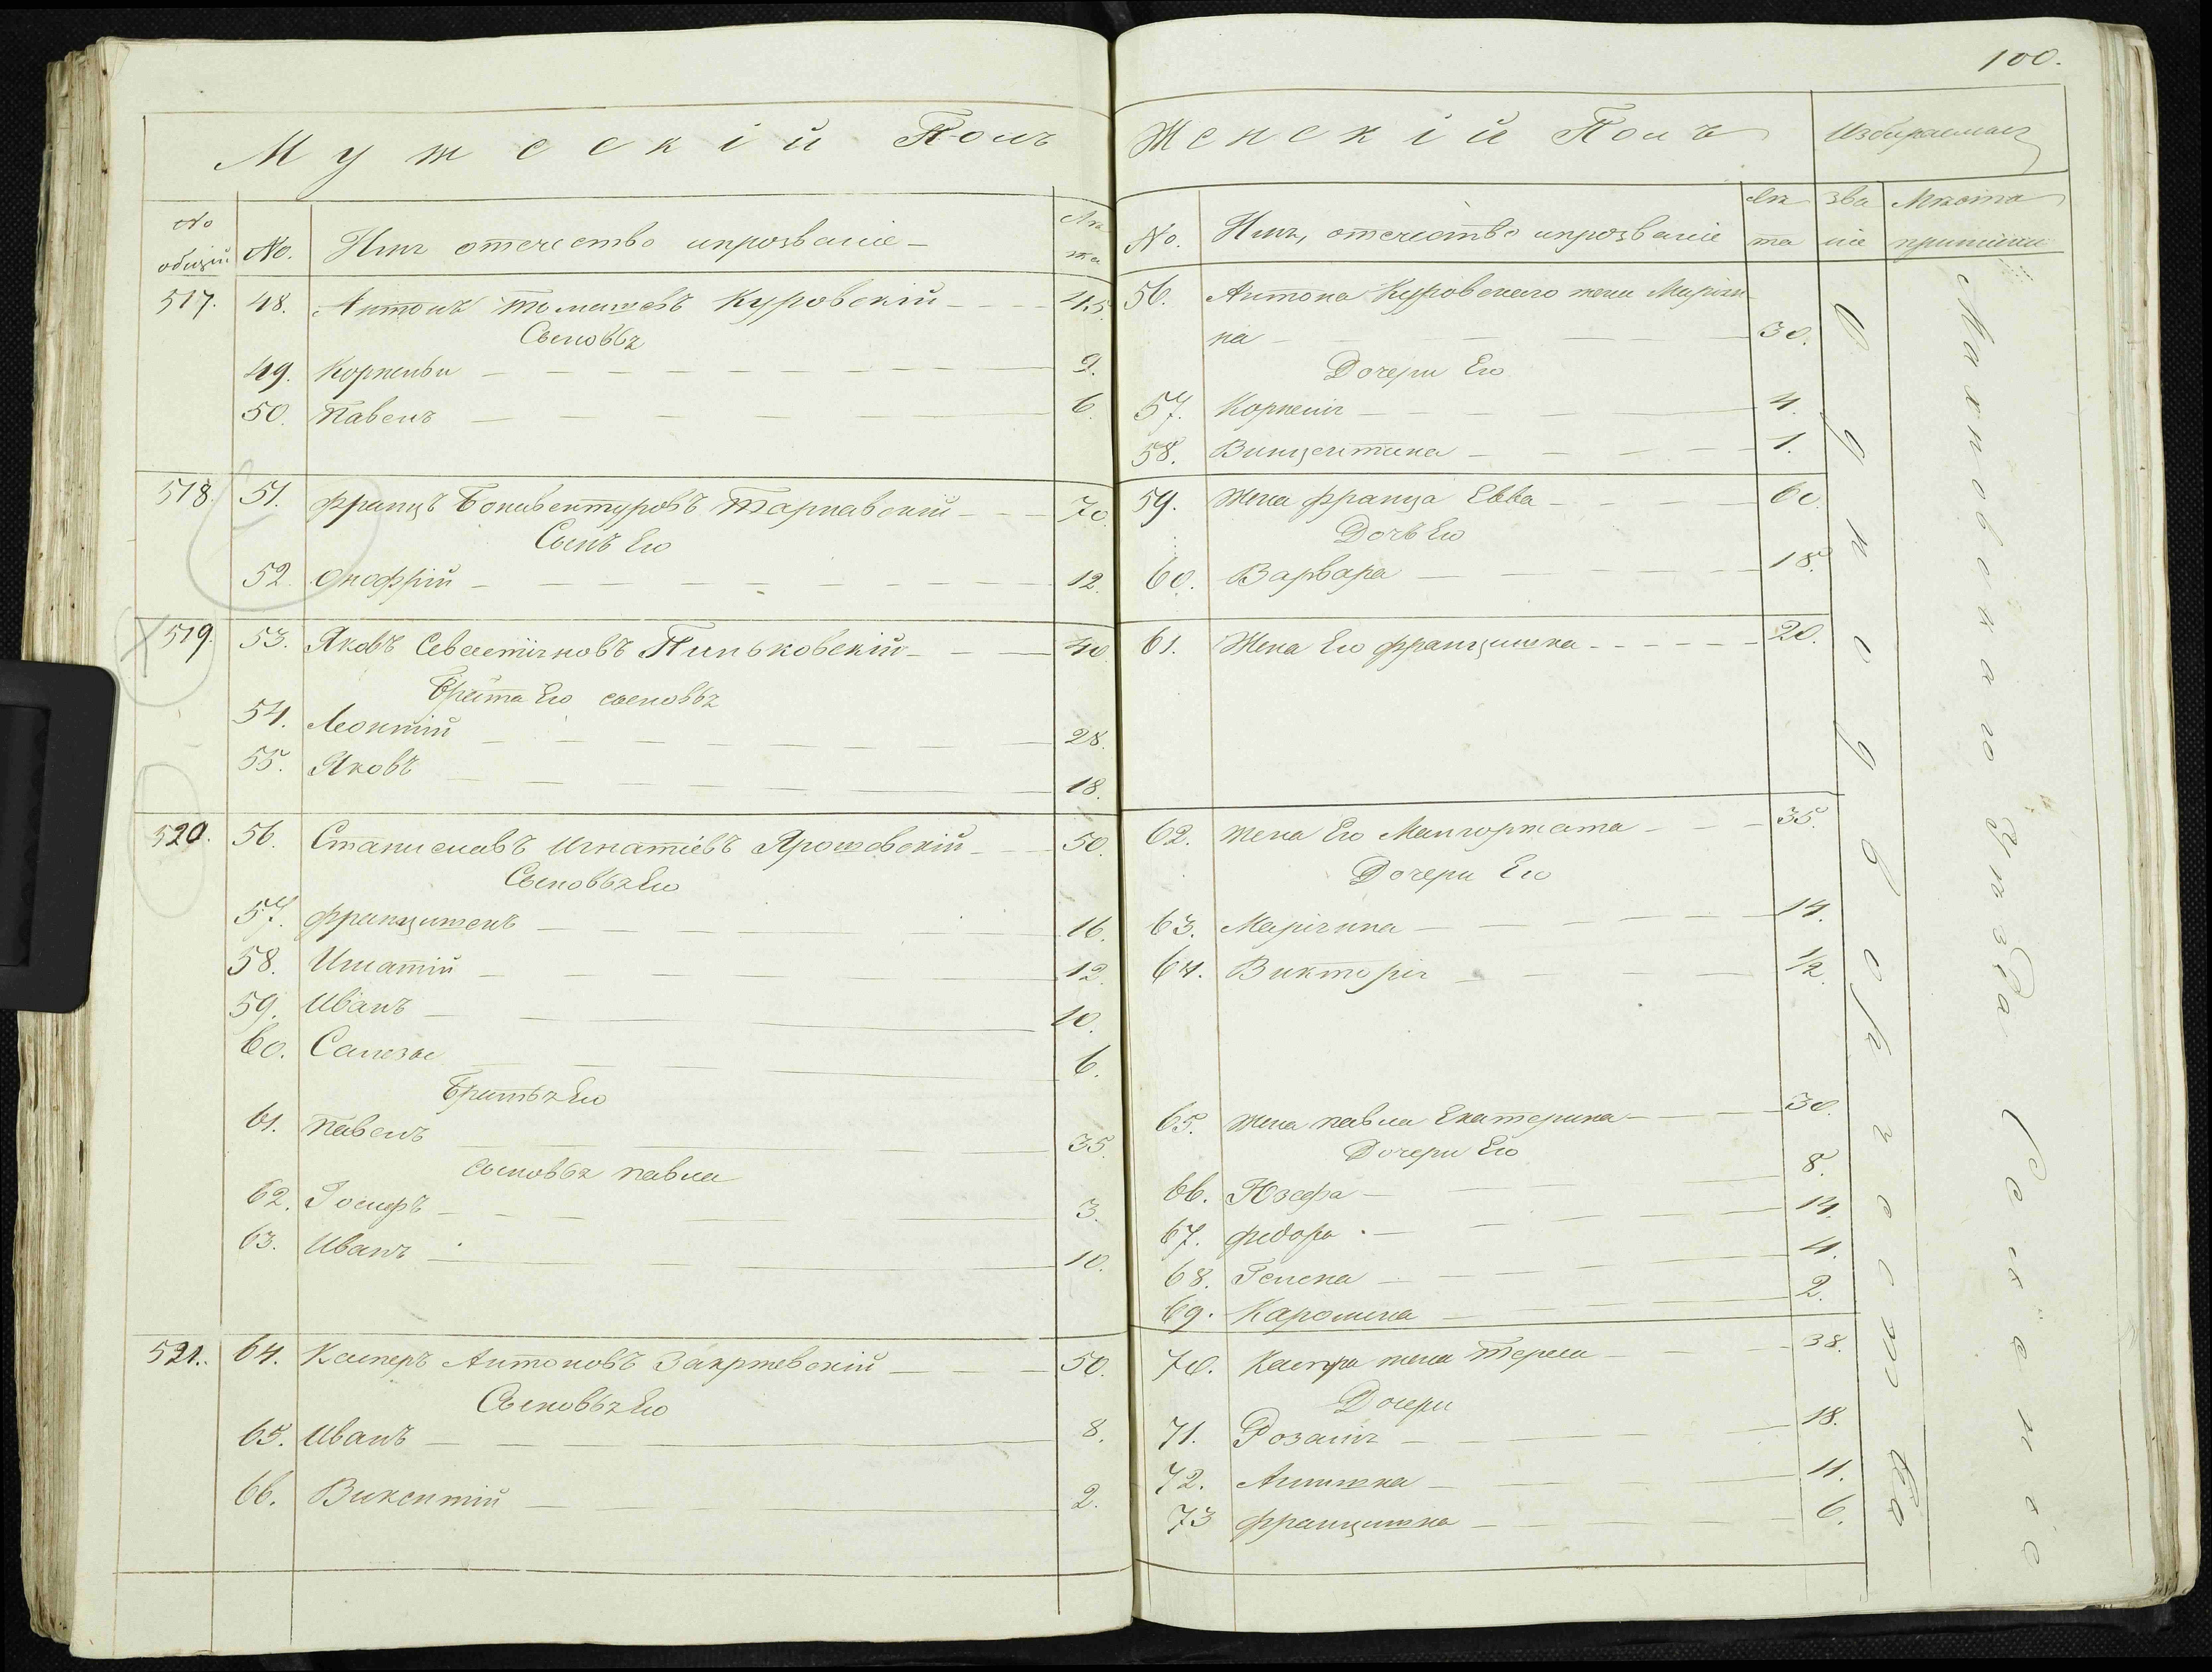 100.
Мужескій Полъ
№ общій
№.
Имя отечество ипрозваніе
Лѣта
517. 48. Антонъ Томашевъ Куровскій 45.
Сыновья
49. Корнелій 9.
50. Павелъ 6.
518. 51. Францъ Бонавентуровъ Тарнавскій 70.
Сынъ Его
52. Онофрій 12.
519. 53. Яковъ Севастіяновъ Пиньковскій 40.
Брата Его сыновья
54. Леонтій 28.
55. Яковъ 18.
520. 56. Станиславъ Игнатіевъ Ярошовскій 50.
Сыновья Его
57. Францишекъ 16.
58. Игнатій 12.
59. Иванъ 10.
60. Салезы 6.
Братья Его
61. Павелъ 35.
сыновья павла
62. Іосифъ 3.
63. Иванъ 10.
521. 64. Касперъ Антоновъ Закржевскій 50.
Сыновья Его
65. Иванъ 8.
66. Викентій 2.
Женскій Полъ
Избираемыя
№.
Имя, отечество ипрозваніе
Лѣта
Званіе
Мѣста приписки
56. Антона Куровскаго жена Маріян-
на 30.
Дочери Его
57. Корнелія 4.
58. Винцентина 1.
59. Жена Франца Евва 60.
Дочь Его
60. Варвара 18.
61. Жена Его Францишка 20.
62. жена Его Малгоржата 35.
Дочери Его
63. Маріянна 14.
64. Викторія 1/2
65. жена павла Екатерина 30.
Дочери Его
66. Юзефа 8.
67. Федора 14.
68. Гелена 4.
69. Каролина 2.
70. Каспра жена Тереса 38.
Дочери
71. Розалія 18.
72. Анишка 11.
73 Францишка 6.
Однодворчества
Махновскаго Уѣзда